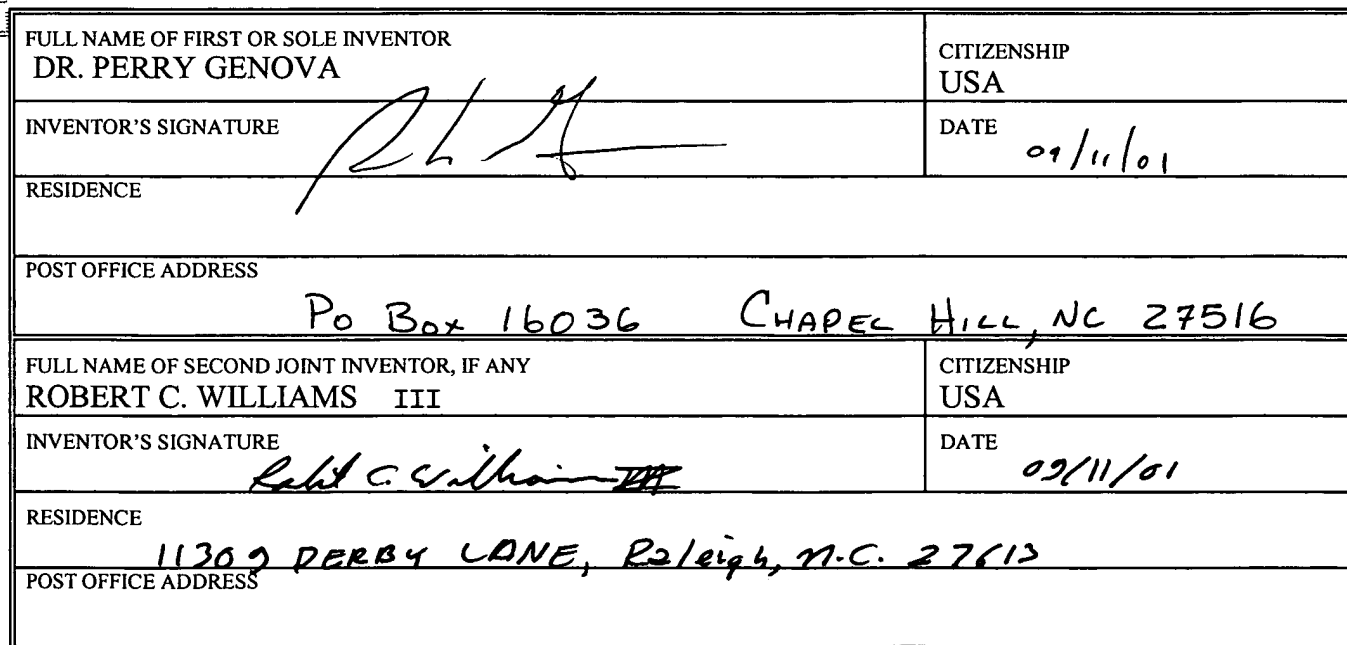 FULL NAME OF FIRST OR SOLE INVENTOR
DR. PERRY GENOVA
CITIZENSHIP
USA
INVENTOR'S SIGNATURE
DATE
09/11/01
RESIDENCE
POST OFFICE ADDRESS
Po Box 16036 CHAPEL HILL, NC 27516
FULL NAME OF SECOND JOINT INVENTOR, IF ANY
ROBERT C. WILLIAMS III
CITIZENSHIP
USA
INVENTOR'S SIGNATURE
Robert C. Williams III
DATE
09/11/01
RESIDENCE
11309 DERBY LANE, Raleigh, N.C. 27613
POST OFFICE ADDRESS